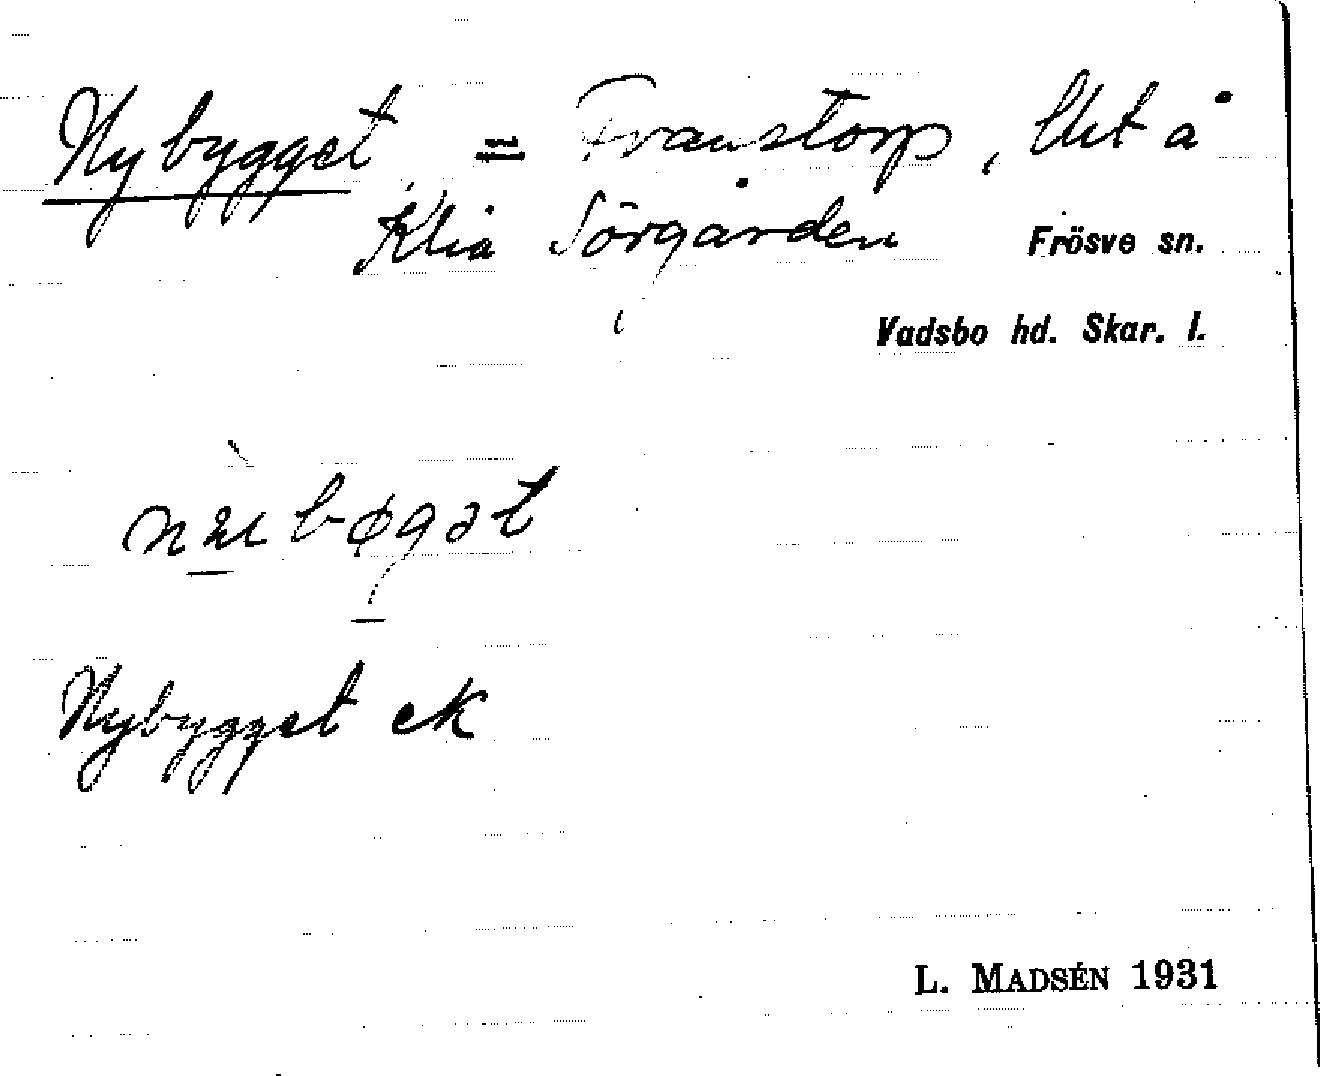 Nybygget = Franstorp, lht å
Klia Sörgården Frösve sn.
Vadsbo hd. Skar. l.
Nybygget ek
L. MADSÉN 1931